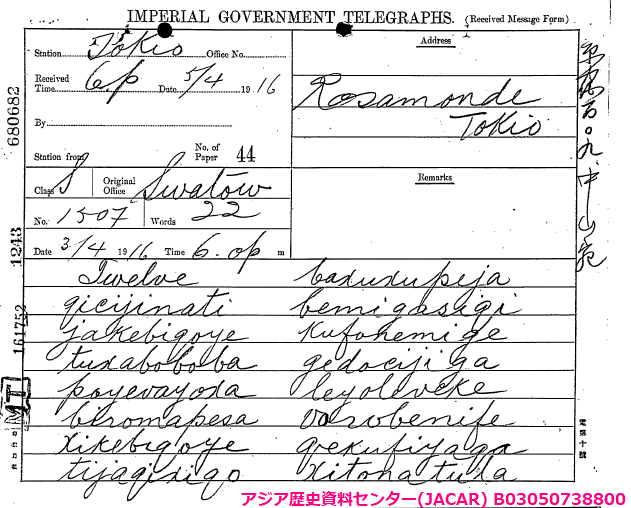 IMPERIAL GOVERNMENT TELEGRAPHS. (Received Message Form)
Station Tokio Office No.
Received Time 6.p Date 5/4 1916
By
Station from No. of Paper 44
Class S Original Office Swatow
No. 1507 Words 22
Date 3/4 1916 Time 6.0p m
Address
Rosamonde
Tokio
Remarks
Twelve baxuxupeja
gicijinati bemigasigi
jakebigoye kufohemige
tuxaboboba gedocijiga
poyevayoxa leyoleveke
biromapesa vorobenife
xikebigoye gekufiyaga
tijagixigo xitonatuxa
680682
1243
161752
MT
電第十號
アジア歴史資料センター(JACAR) B03050738800